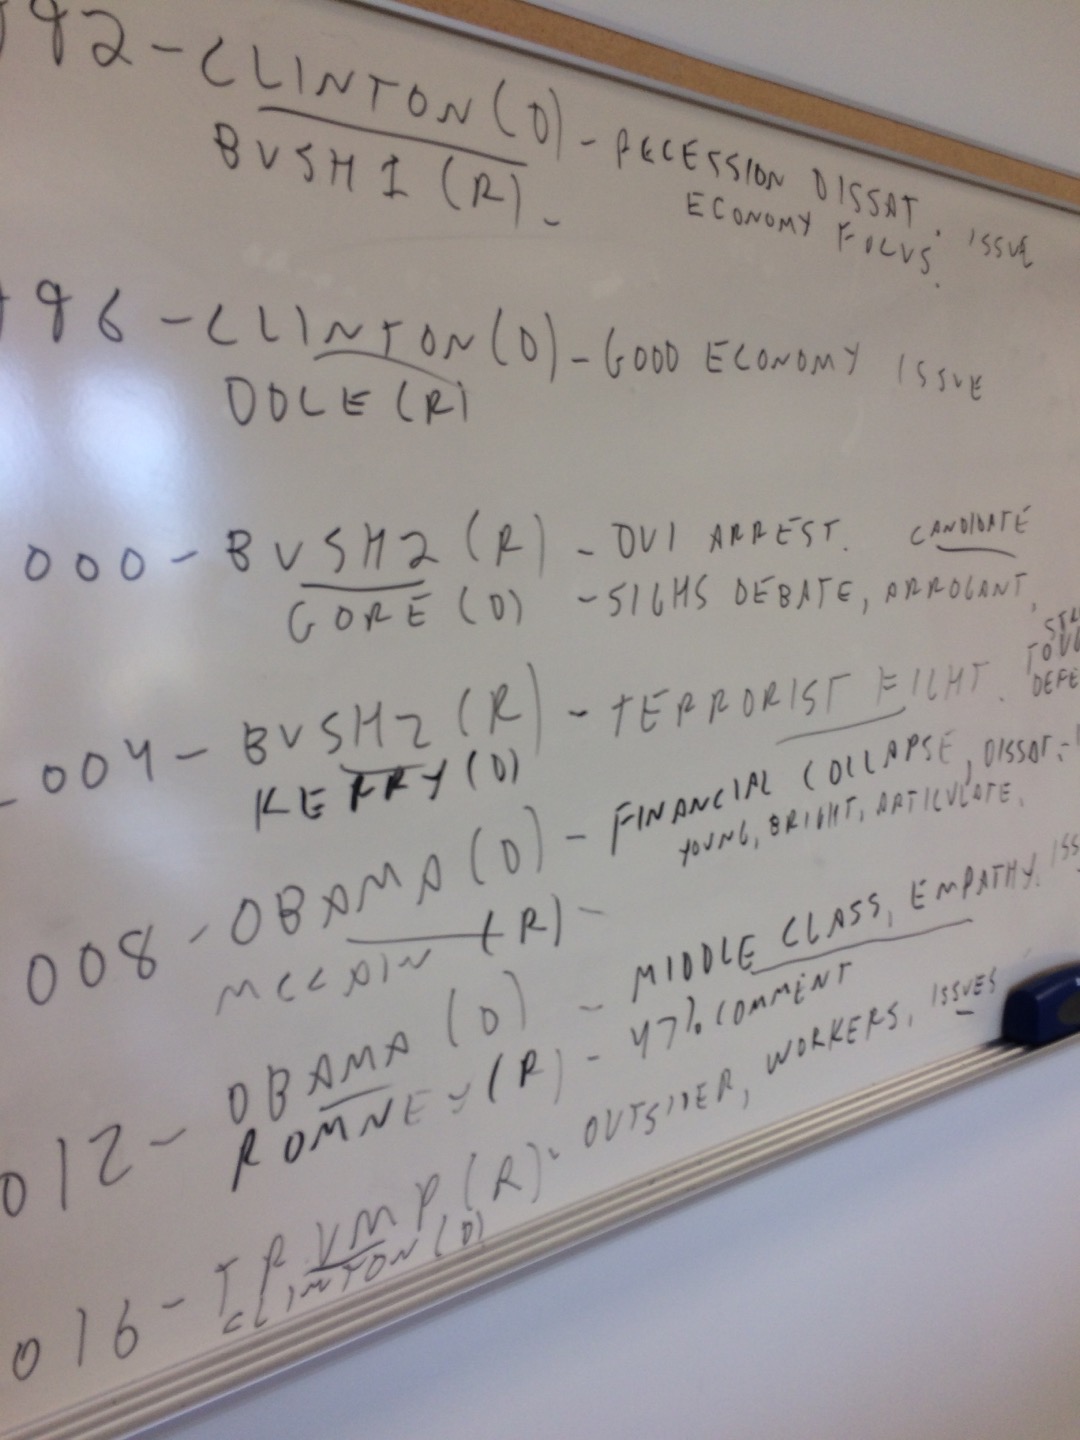 992-CLINTON (D) - RECESSION DISSAT. ISSUE
BUSH 1 (R) - ECONOMY FOCUS.
996-CLINTON (D) - GOOD ECONOMY ISSUE
DOLE (R)
000 - BUSH2 (R) - OUI ARREST. CANDIDATE
GORE (D) - SIGHS DEBATE, ARROGANT,
004 - BUSH2 (R) - TERRORIST FIGHT.
KERRY (D)
008 - OBAMA (D) - FINANCIAL COLLAPSE, DISSAT.
YOUNG, BRIGHT, ARTICULATE.
MCCAIN (R) -
012 - OBAMA (D) - MIDDLE CLASS, EMPATHY.
ROMNEY (R) - 47% COMMENT
016 - TRUMP (R) - OUTSIDER, WORKERS, ISSUES
CLINTON (D)